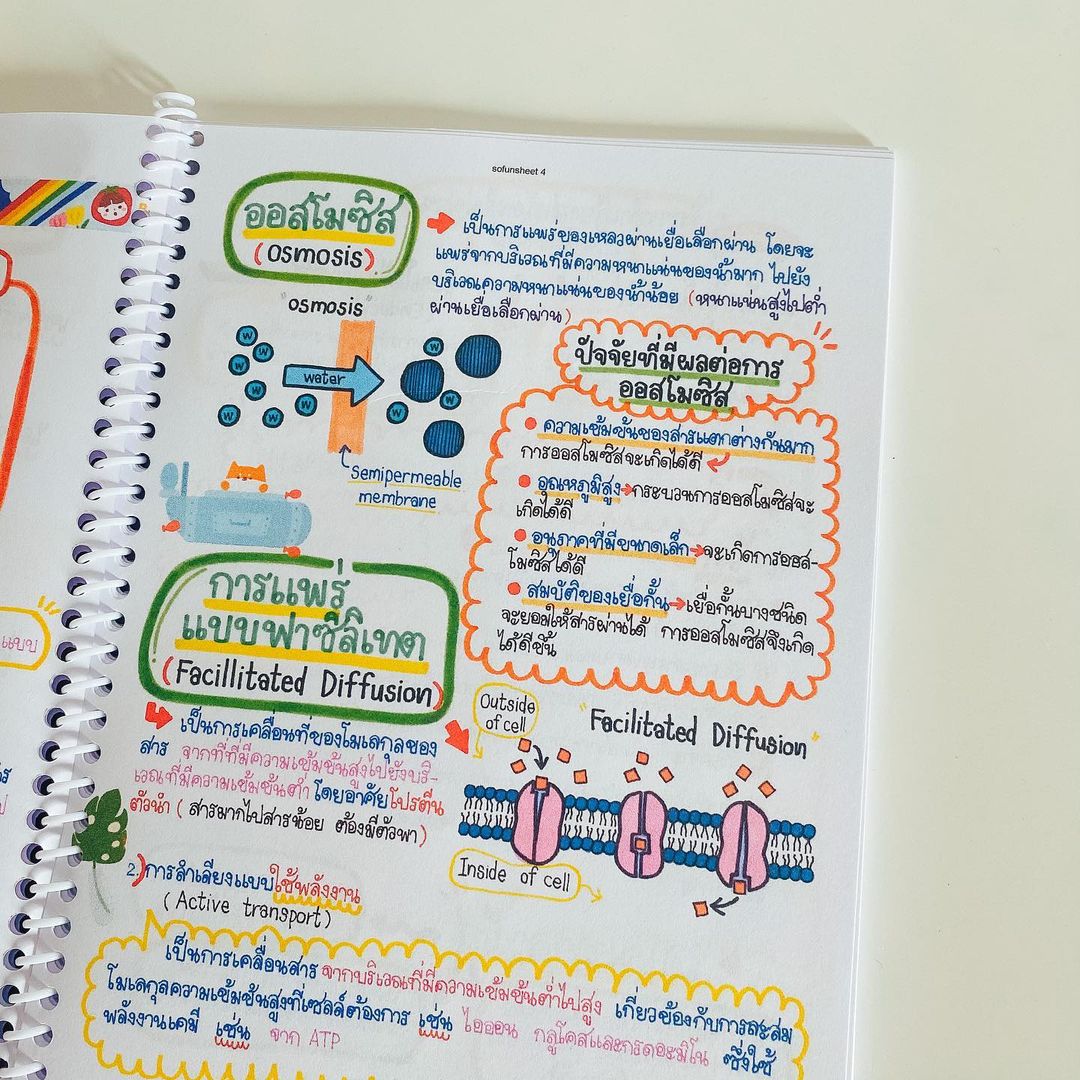 sofunsheet 4
ออสโมซิส
(osmosis)
เป็นการแพร่ของเหลวผ่านเยื่อเลือกผ่าน โดยจะ
แพร่จากบริเวณที่มีความหนาแน่นของน้ำมาก ไปยัง
บริเวณความหนาแน่นของน้ำน้อย (หนาแน่นสูงไปต่ำ
ผ่านเยื่อเลือกผ่าน)
"osmosis"
W
W
W
W
W
W
W
W
W
W
water
Semipermeable
membrane
ปัจจัยที่มีผลต่อการ
ออสโมซิส
ความเข้มข้นของสารแตกต่างกันมาก
การออสโมซิสจะเกิดได้ดี
อุณหภูมิสูง→กระบวนการออสโมซิสจะ
เกิดได้ดี
อนุภาคที่มีขนาดเล็ก→จะเกิดการออส-
โมซิสได้ดี
สมบัติของเยื่อกั้น→เยื่อกั้นบางชนิด
จะยอมให้สารผ่านได้ การออสโมซิสจึงเกิด
ได้ดีขึ้น
การแพร่
แบบฟาซิลิเทต
(Facillitated Diffusion)
เป็นการเคลื่อนที่ของโมเลกุลของ
สาร จากที่ที่มีความเข้มข้นสูงไปยังบริ-
เวณที่มีความเข้มข้นต่ำ โดยอาศัยโปรตีน
ตัวนำ (สารมากไปสารน้อย ต้องมีตัวพา)
Outside
of cell
"Facilitated Diffusion"
Inside of cell
2.)การลำเลียงแบบใช้พลังงาน
(Active transport)
เป็นการเคลื่อนสาร จากบริเวณที่มีความเข้มข้นต่ำไปสูง เกี่ยวข้องกับการสะสม
โมเลกุลความเข้มข้นสูงที่เซลล์ต้องการ เช่น ไอออน กลูโคสและกรดอะมิโน ซึ่งใช้
พลังงานเคมี เช่น จาก ATP
แบบ